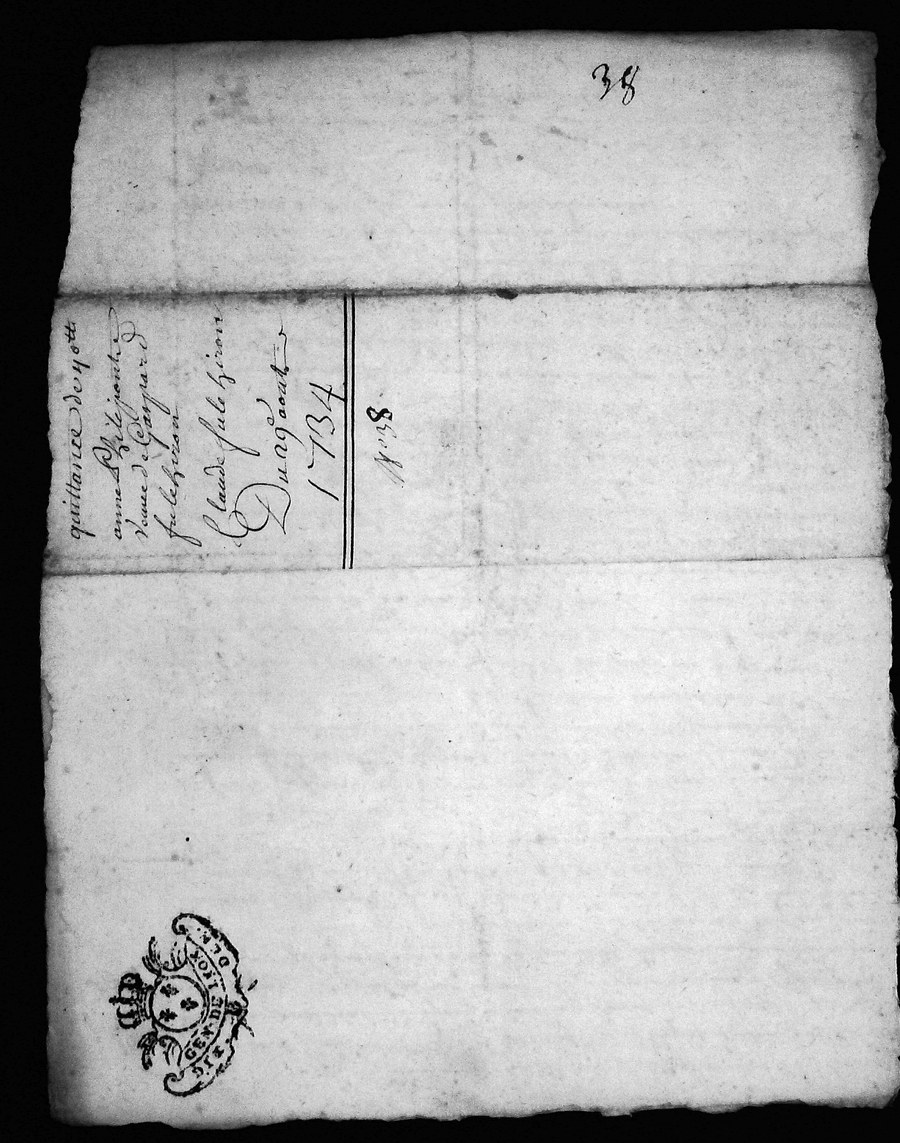 38
quittance de 40tt
anne
veuve de Gaspard
fulchiron
Claude fulchiron
Du 29e aoat
1734
N° 38
GEN. DE LYON
SIX DEN.